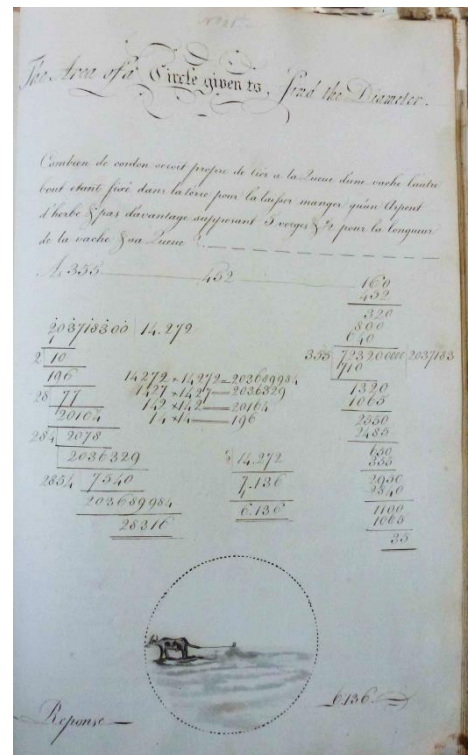 The Area of a Circle given to, find the Diameter.
Combien de cordon seroit propre de lier a la Queue d'une vache l'autre
bout etant fixé dans la terre pour la laisser manger qu'un Arpent
d'herbe & pas davantage supposant 5 verges & ½ pour la longueur
de la vache & sa Queue
As 355 452
160
452
320
800
640
355 72320000 2037183
710
1320
1065
2550
2485
650
355
2950
2840
1100
1065
35
203718300 14.272
1
2 10
196
28 77
20164
284 2078
2036329
2854 7540
203689984
28316
14272 × 14272 = 203689984
1427 × 1427 = 2036329
142 × 142 = 20164
14 × 14 = 196
14.272
7.136
6.136
Reponse 6.136